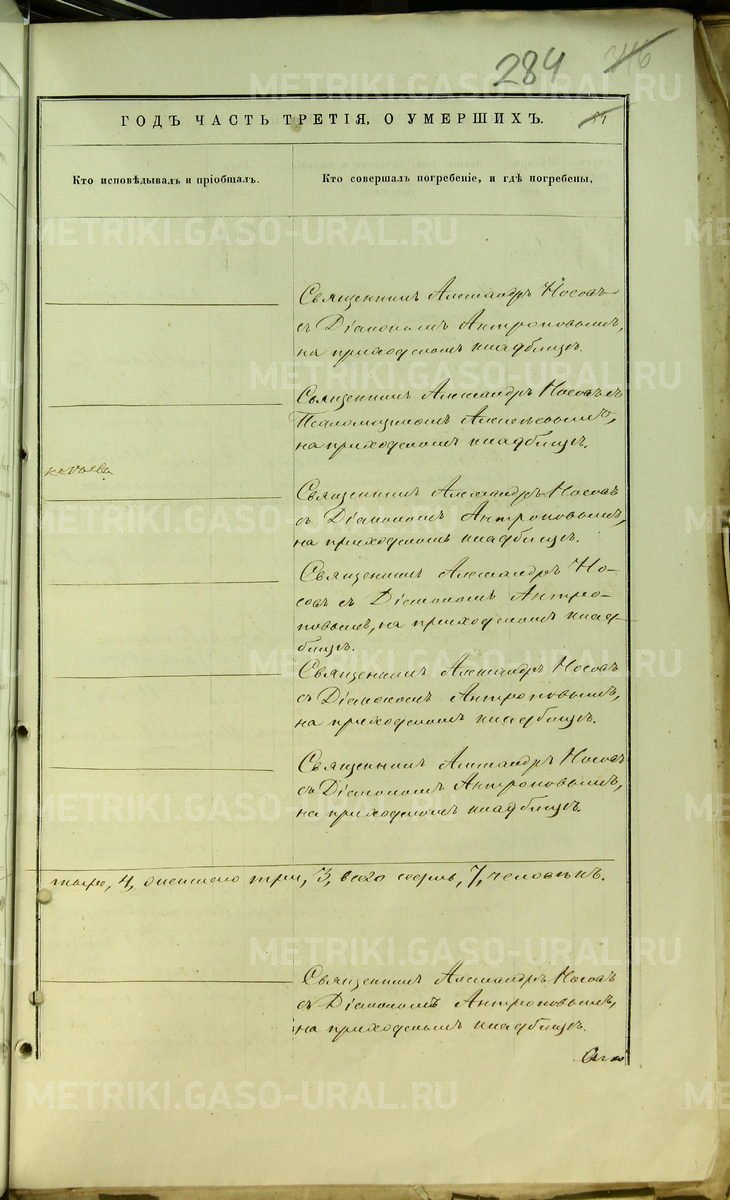 284
ГОДЪ ЧАСТЬ ТРЕТІЯ, О УМЕРШИХЪ.
Кто исповѣдывалъ и пріобщалъ.
Кто совершалъ погребеніе, и гдѣ погребены.
Священникъ Александръ Носовъ
съ Діакономъ Антроповымъ,
на приходскомъ кладбищѣ.
Священникъ Александръ Носовъ съ
Псаломщикомъ Алексѣевымъ,
на приходскомъ кладбищѣ.
Священникъ Александръ Носовъ
съ Діакономъ Антроповымъ,
на приходскомъ кладбищѣ.
Священникъ Александръ Но-
совъ съ Діакономъ Антро-
повымъ, на приходскомъ клад-
бищѣ.
Священникъ Александръ Носовъ
съ Діакономъ Антроповымъ,
на приходскомъ кладбищѣ.
Священникъ Александръ Носовъ
съ Діакономъ Антроповымъ,
на приходскомъ кладбищѣ.
тыре, 4, женскаго три, 3, всего семь, 7, человѣкъ.
Священникъ Александръ Носовъ
съ Діакономъ Антроповымъ,
на приходскомъ кладбищѣ.
METRIKI.GASO-URAL.RU